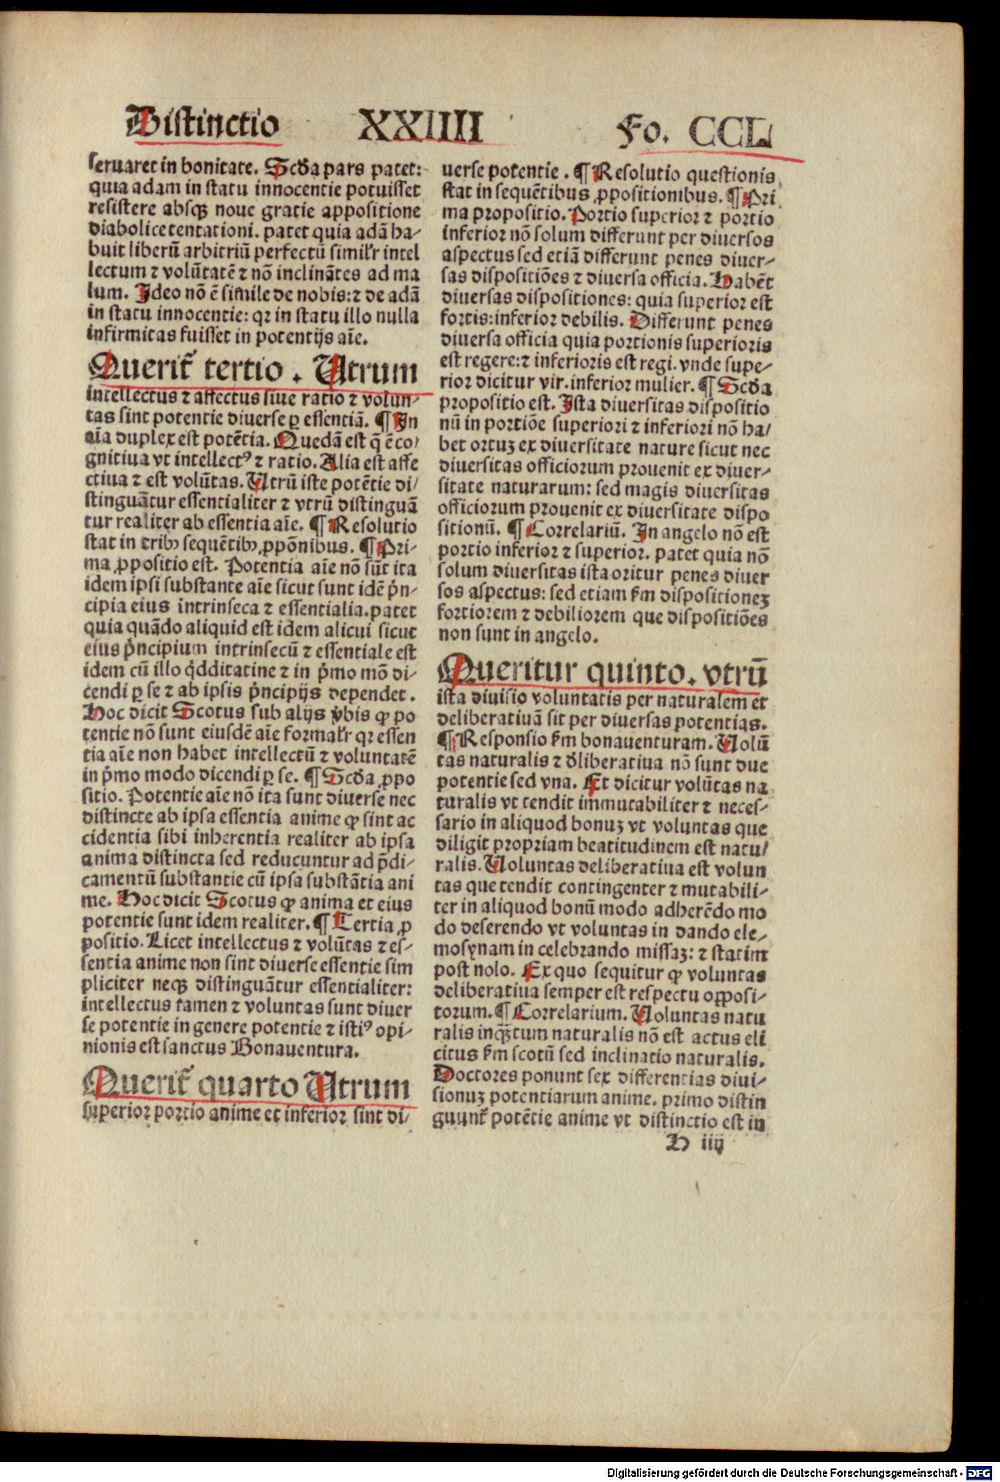 Distinctio XXIIII Fo. CCL
seruaret in bonitate. Scḋa pars patet:
quia adam in statu innocentie potuisset
resistere absqꝫ noue gratie appositione
diabolice tentationi. patet quia adā ha-
buit liberū arbitriū perfectū simil'r intel
lectum ⁊ volūtatē ⁊ nō inclinātes ad ma
lum. Ideo nō ē simile de nobis: ⁊ de adā
in statu innocentie: qꝛ in statu illo nulla
infirmitas fuisset in potentijs aīe.
Querit̄ tertio. Utrum
intellectus ⁊ affectus siue ratio ⁊ volun-
tas sint potentie diuerse ꝑ essentiā. ¶ In
aīa duplex est potētia. Quedā est q̄ ē co/
gnitiua vt intellectꝰ ⁊ ratio. Alia est affe
ctiua ⁊ est volūtas. Utrū iste potētie di/
stinguātur essentialiter ⁊ vtrū distinguā
tur realiter ab essentia aīe. ¶ Resolutio
stat in tribꝫ sequētibꝫ ꝓpōnibus. ¶ Pri-
ma ꝓpositio est. Potentia aīe nō sūt ita
idem ipsi substantie aīe sicut sunt idē p̄n-
cipia eius intrinseca ⁊ essentialia. patet
quia quādo aliquid est idem alicui sicut
eius p̄ncipium intrinsecū ⁊ essentiale est
idem cū illo q̇dditatiue ⁊ in p̄mo mō di-
cendi ꝑ se ⁊ ab ipsis p̄ncipijs dependet.
Hoc dicit Scotus sub alijs v̄bis ꝙ po
tentie nō sunt eiusdē aīe formal'r qꝛ essen
tia aīe non habet intellectū ⁊ voluntatē
in p̄mo modo dicendi ꝑ se. ¶ Scḋa ꝓpo
sitio. Potentie aīe nō ita sunt diuerse nec
distincte ab ipsa essentia anime ꝙ sint ac
cidentia sibi inherentia realiter ab ipsa
anima distincta sed reducuntur ad p̄di-
camentū substantie cū ipsa substātia ani
me. Hoc dicit Scotus ꝙ anima et eius
potentie sunt idem realiter. ¶ Tertia ꝓ
positio. Licet intellectus ⁊ volūtas ⁊ es-
sentia anime non sint diuerse essentie sim
pliciter neqꝫ distinguātur essentialiter:
intellectus tamen ⁊ voluntas sunt diuer
se potentie in genere potentie ⁊ istiꝰ opi-
nionis est sanctus Bonauentura.
Querit̄ quarto Utrum
superior portio anime et inferior sint di-
uerse potentie. ¶ Resolutio questionis
stat in sequētibus ꝓpositionibus. ¶ Pri
ma propositio. Portio superior ⁊ portio
inferior nō solum differunt per diuersos
aspectus sed etiā differunt penes diuer-
sas dispositiões ⁊ diuersa officia. Habēt
diuersas dispositiones: quia superior est
fortis: inferior debilis. Differunt penes
diuersa officia quia portionis superioris
est regere: ⁊ inferioris est regi. vnde supe-
rior dicitur vir. inferior mulier. ¶ Scḋa
propositio est. Ista diuersitas dispositio
nū in portiõe superiori ⁊ inferiori nō ha/
bet ortuꝫ ex diuersitate nature sicut nec
diuersitas officiorum prouenit ex diuer-
sitate naturarum: sed magis diuersitas
officiorum prouenit ex diuersitate dispo
sitionū. ¶ Correlariū. In angelo nō est
portio inferior ⁊ superior. patet quia nō
solum diuersitas ista oritur penes diuer
sos aspectus: sed etiam ẜm dispositioneꝫ
fortiorem ⁊ debiliorem que dispositiões
non sunt in angelo.
Queritur quinto. vtrū
ista diuisio voluntatis per naturalem et
deliberatiuā sit per diuersas potentias.
¶ Responsio ẜm bonauenturam. Uolū
tas naturalis ⁊ d̄liberatiua nō sunt due
potentie sed vna. Et dicitur volūtas na
turalis vt tendit immutabiliter ⁊ neces-
sario in aliquod bonuꝫ vt voluntas que
diligit propriam beatitudinem est natu/
ralis. Uoluntas deliberatiua est volun
tas que tendit contingenter ⁊ mutabili-
ter in aliquod bonū modo adherēdo mo
do deserendo vt voluntas in dando ele-
mosynam in celebrando missaꝫ: ⁊ statim
post nolo. Ex quo sequitur ꝙ voluntas
deliberatiua semper est respectu opposi-
torum. ¶ Correlarium. Uoluntas natu
ralis inqꝫtum naturalis nō est actus eli
citus ẜm scotū sed inclinatio naturalis.
Doctores ponunt sex differentias diui-
sionuꝫ potentiarum anime. primo distin
guunt̄ potētie anime vt distinctio est in
H iiij
Digitalisierung gefördert durch die Deutsche Forschungsgemeinschaft - DFG